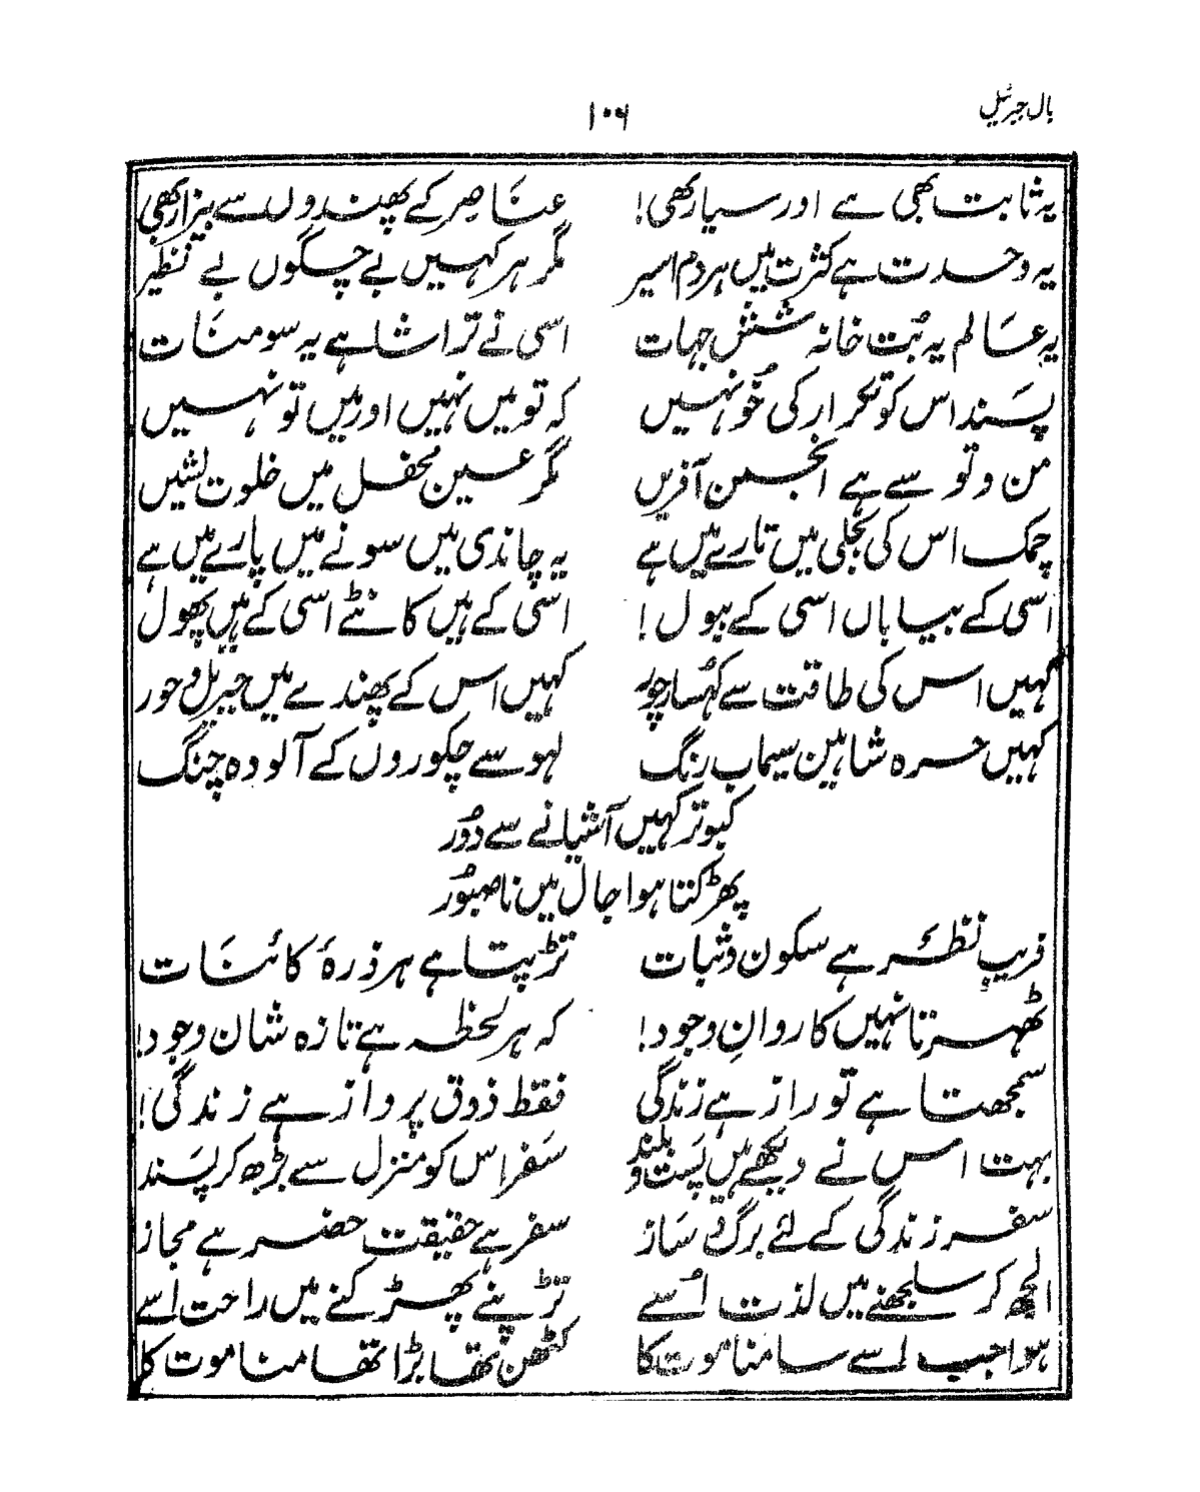 بال جبریل
۱۰۶
یہ ثابت بھی ہے اور سیار بھی! عناصر کے پھندوں سے بیزار بھی
یہ وحدت ہے کثرت میں ہر دم اسیر مگر ہر کہیں بے چگوں بے نظیر
یہ عالم یہ بُت خانہ شش جہات اسی نے تراشا ہے یہ سومنات
پسند اس کو تکرار کی خُو نہیں کہ تو میں نہیں اور میں تو نہیں
من و تو سے ہے انجمن آفریں مگر عین محفل میں خلوت نشیں
چمک اس کی بجلی میں تارے میں ہے یہ چاندی میں سونے میں پارے میں ہے
اسی کے بیاباں اسی کے ببول! اسی کے ہیں کانٹے اسی کے ہیں پھول
کہیں اس کی طاقت سے کہُسار چُور کہیں اس کے پھندے میں جبریل و حور
کہیں جرہ شاہین سیماب رنگ لہو سے چکوروں کے آلودہ چنگ
کبوتر کہیں آشیانے سے دُور
پھڑکتا ہوا جال میں ناصبُور
فریبِ نظر ہے سکون و ثبات تڑپتا ہے ہر ذرۂ کائنات
ٹھہرتا نہیں کاروانِ وجود! کہ ہر لحظہ ہے تازہ شان وجود!
سمجھتا ہے تو راز ہے زندگی فقط ذوق پرواز ہے زندگی!
بہت اس نے دیکھے ہیں پست و بلند سفر اس کو منزل سے بڑھ کر پسند
سفر زندگی کے لئے برگ و ساز سفر ہے حقیقت حضر ہے مجاز
الجھ کر سلجھنے میں لذت اُسے تڑپنے پھڑکنے میں راحت اسے
ہوا جب اسے سامنا موت کا کٹھن تھا بڑا تھامنا موت کا